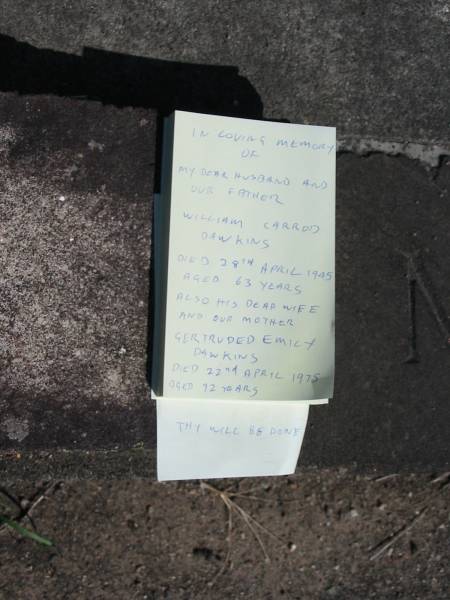 IN LOVING MEMORY
OF
MY DEAR HUSBAND AND
OUR FATHER
WILLIAM CARROD
DAWKINS
DIED 28TH APRIL 1945
AGED 63 YEARS
ALSO HIS DEAR WIFE
AND OUR MOTHER
GERTRUDED EMILY
DAWKINS
DIED 22ND APRIL 1975
AGED 92 YEARS
THY WILL BE DONE